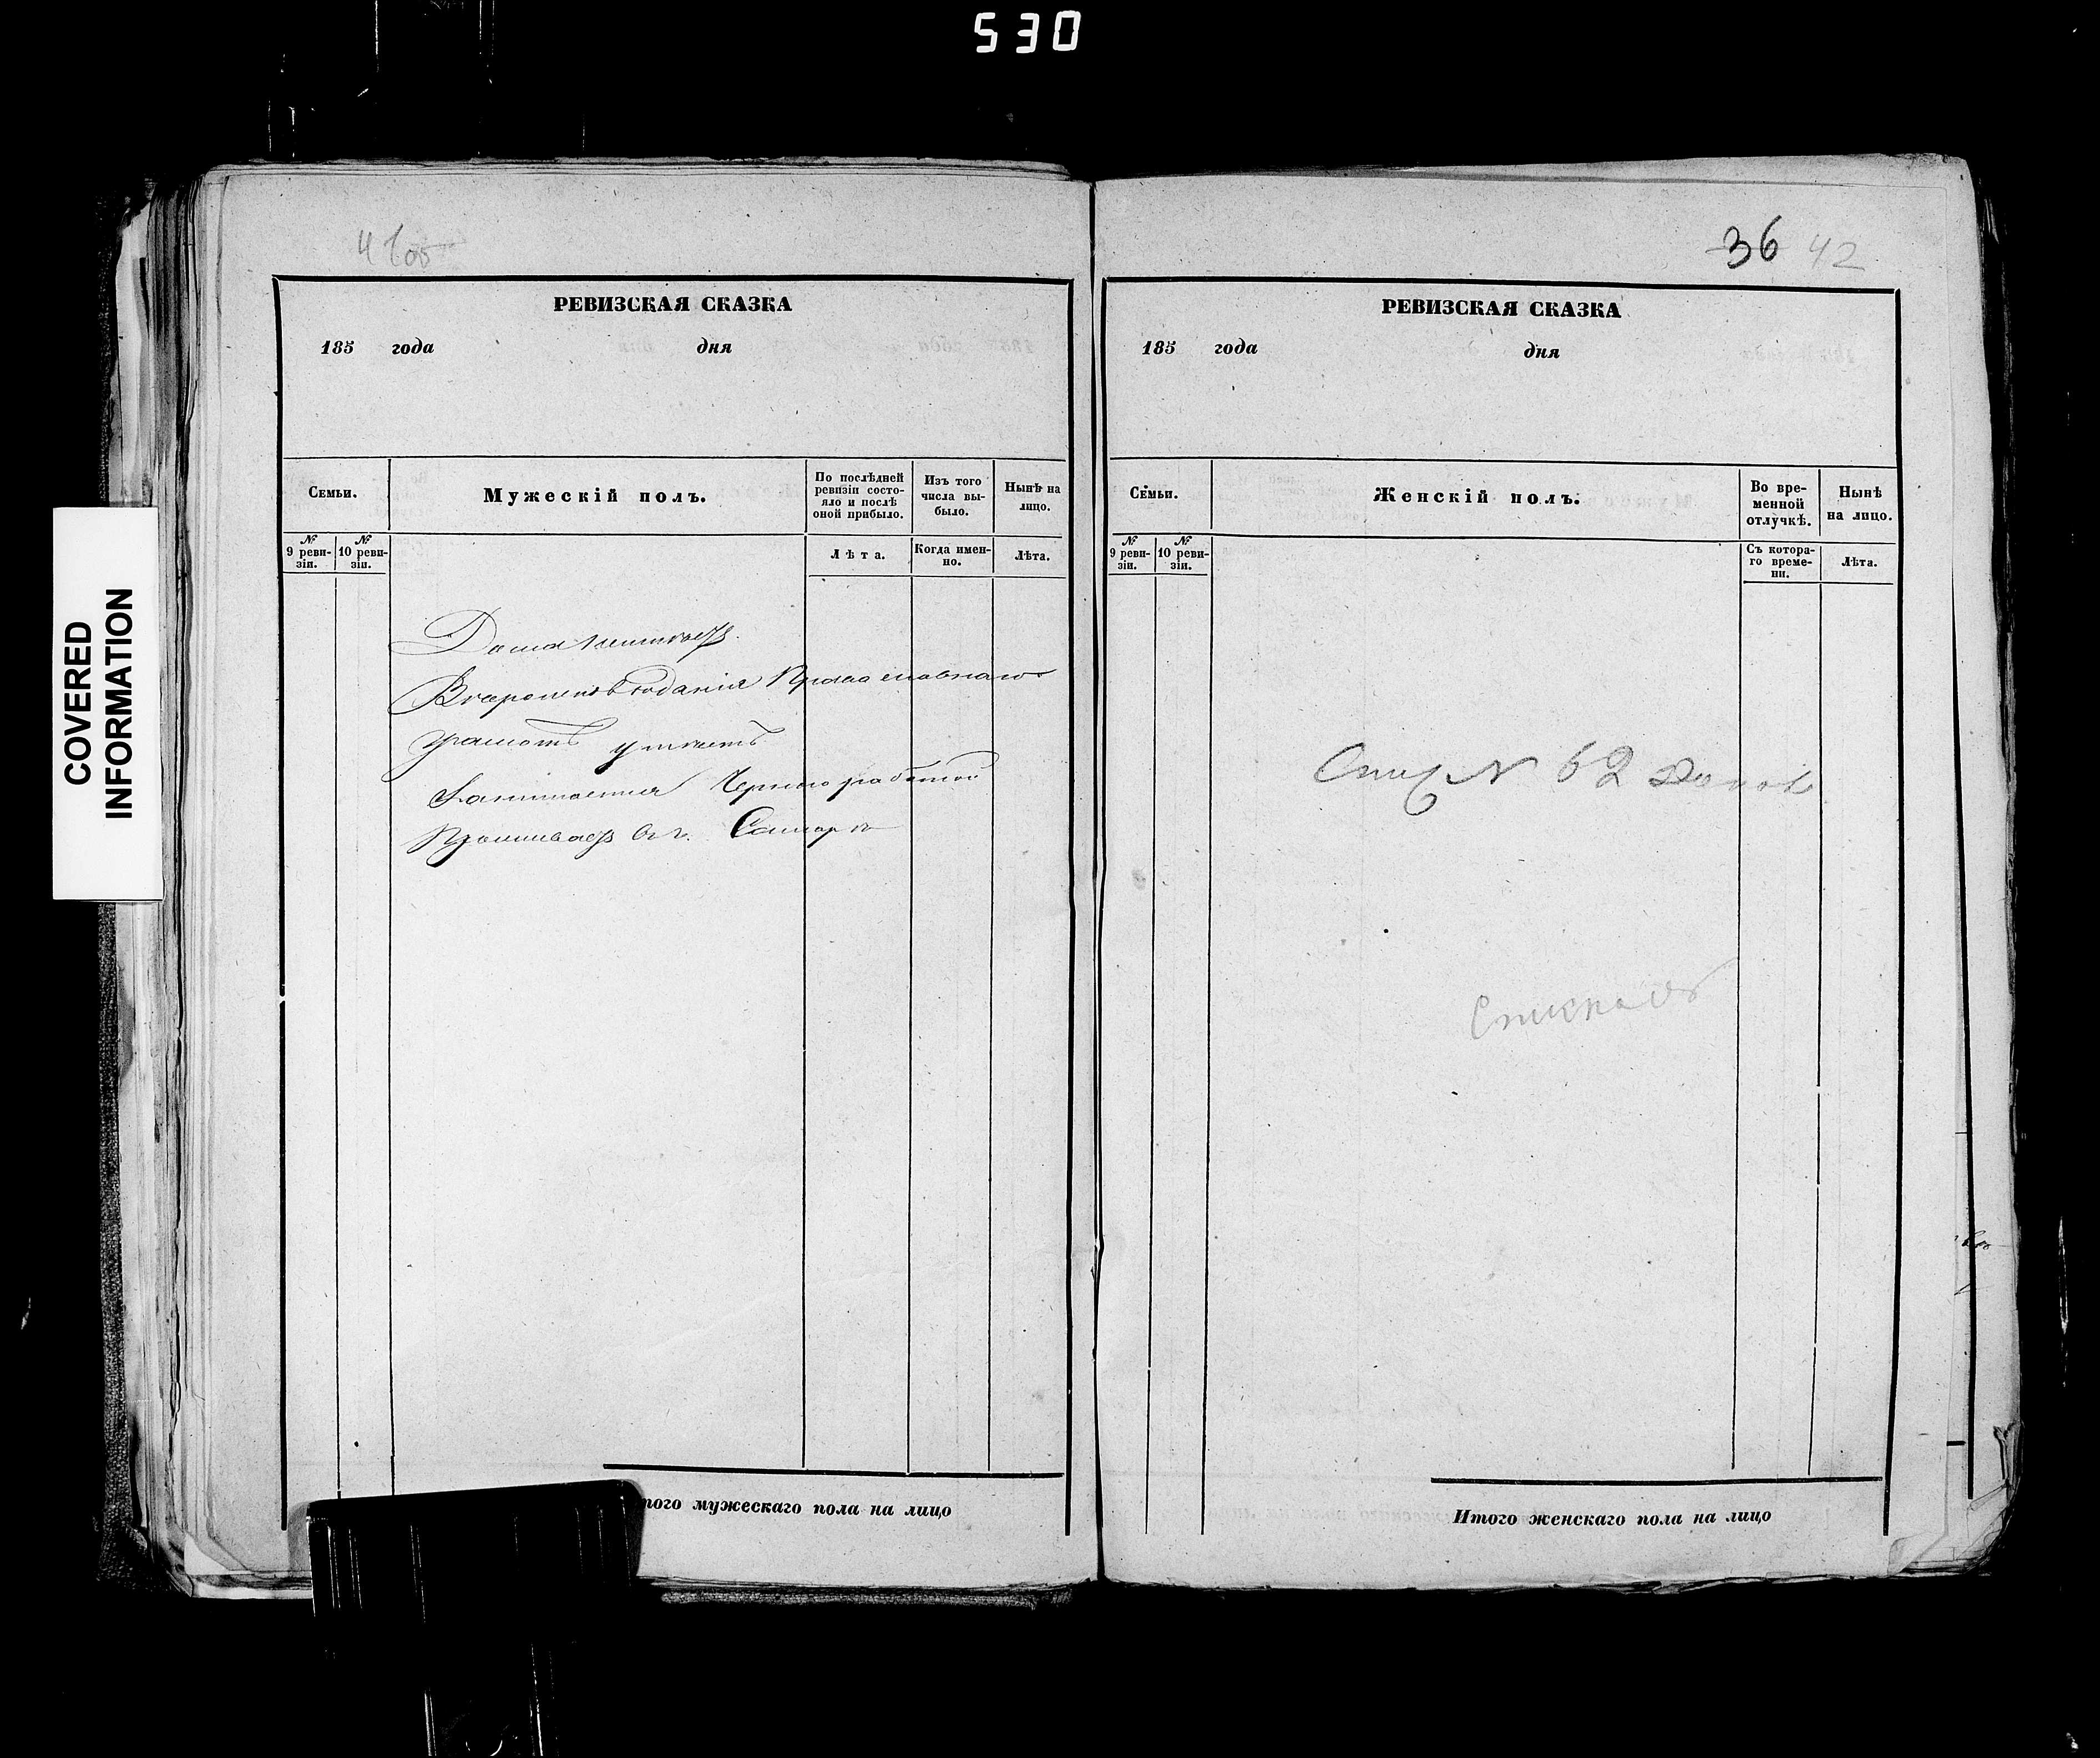 530
41 об
РЕВИЗСКАЯ СКАЗКА
185 года дня
Семьи.
Мужескій полъ.
По послѣдней ревизіи состояло и послѣ оной прибыло.
Изъ того числа выбыло.
Нынѣ на лицо.
№ 9 ревизіи.
№ 10 ревизіи.
Лѣта.
Когда именно.
Лѣта.
Дома неимѣетъ
Вѣроисповѣданія Православнаго
Грамотѣ умѣетъ
Занимается Черной работой
Проживаетъ въ г. Самарѣ
того мужескаго пола на лицо
36 42
РЕВИЗСКАЯ СКАЗКА
185 года дня
Семьи.
Женскій полъ.
Во временной отлучкѣ.
Нынѣ на лицо.
№ 9 ревизіи.
№ 10 ревизіи.
Съ котораго времени.
Лѣта.
№ 62
Списналъ
Итого женскаго пола на лицо
COVERED
INFORMATION